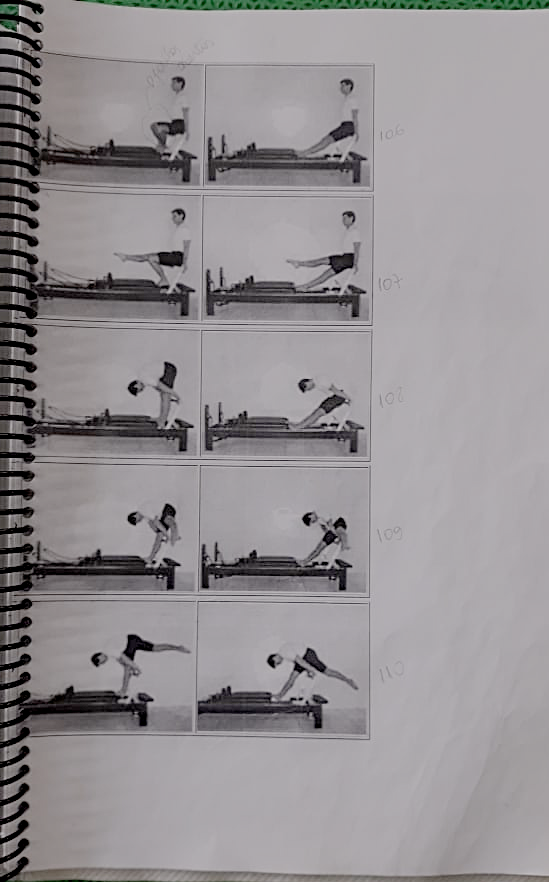 106
107
108
109
110